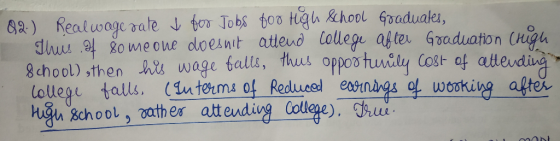 Q2.) Real wage rate ↓ for Jobs for High School Graduates,
Thus if someone doesnit attend College after Graduation (High
School), then his wage falls, thus opportunity Cost of attending
College falls. (In terms of Reduced earnings of working after
High School, rather attending College). True.